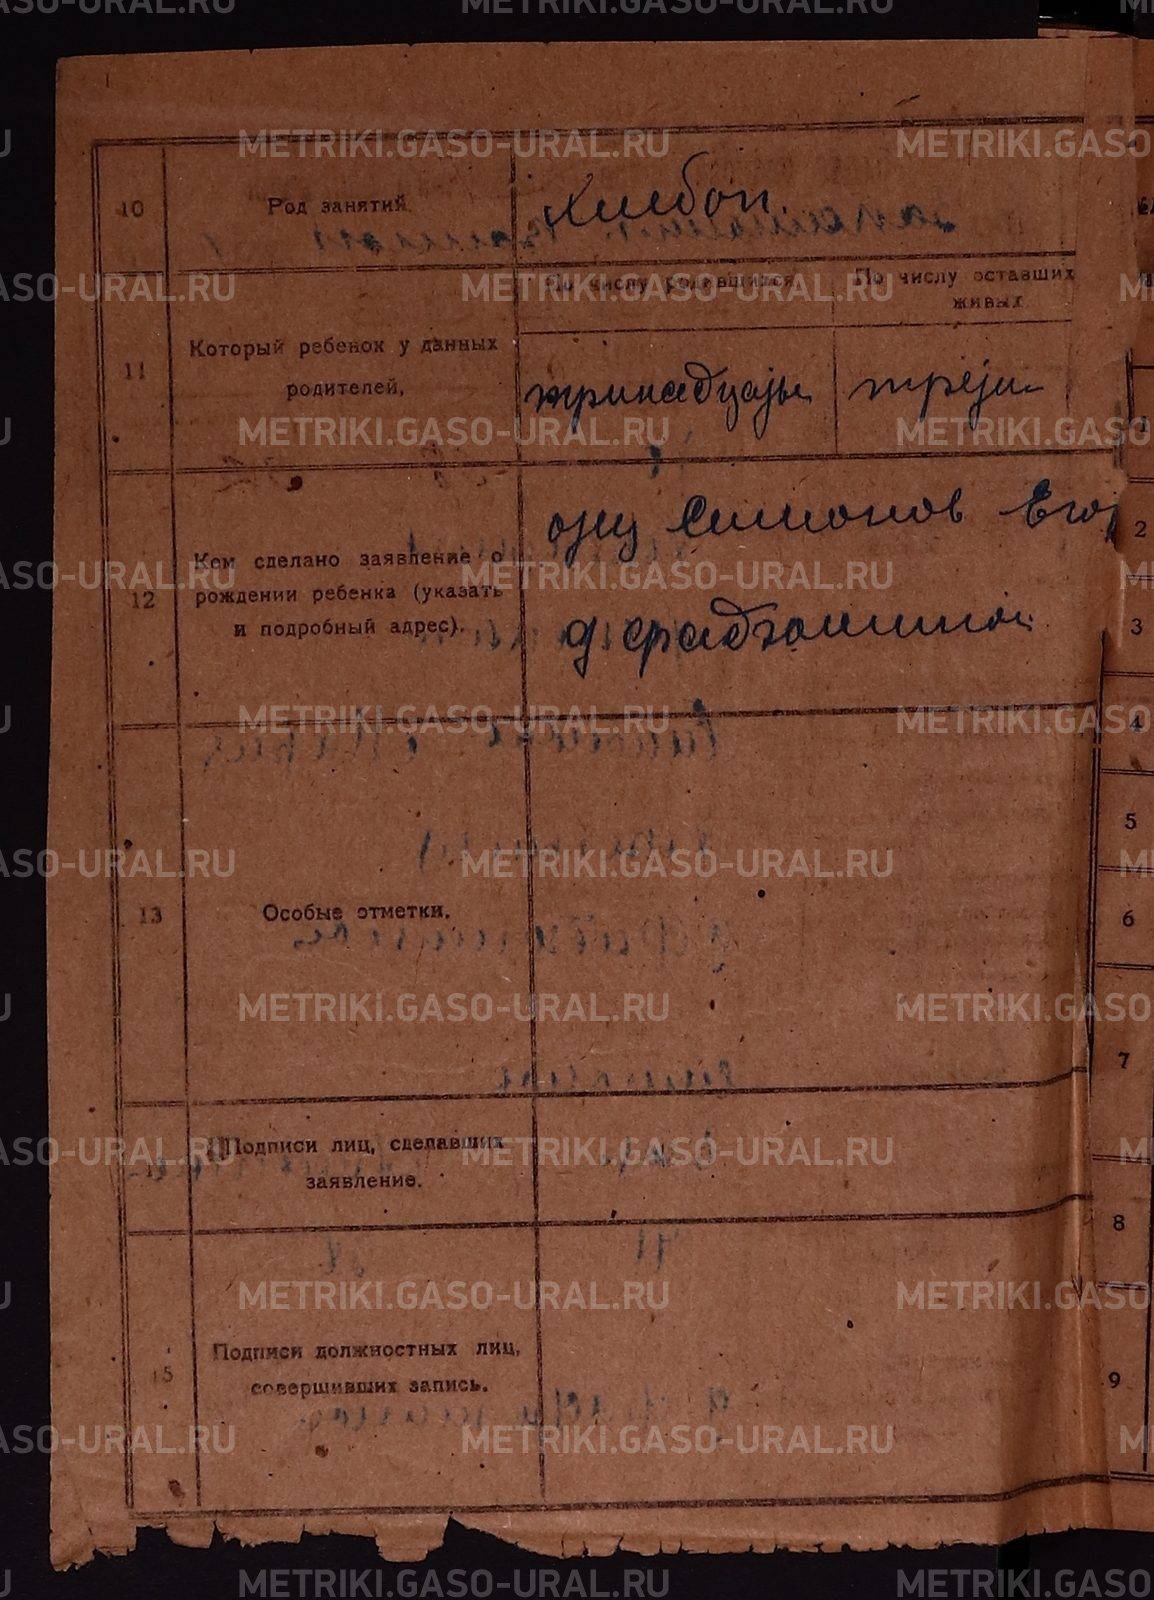 10 Род занятий. Хлебоп.
По числу родившихся По числу оставших живых
11 Который ребенок у данных родителей,
тринадцать третий
12 Кем сделано заявление о
рождении ребенка (указать
и подробный адрес).
отец Симонов Его
д
13 Особые отметки.
Подписи лиц, сделавших
заявление.
15 Подписи должностных лиц,
совершивших запись.
1
2
3
4
5
6
7
8
9
METRIKI.GASO-URAL.RU